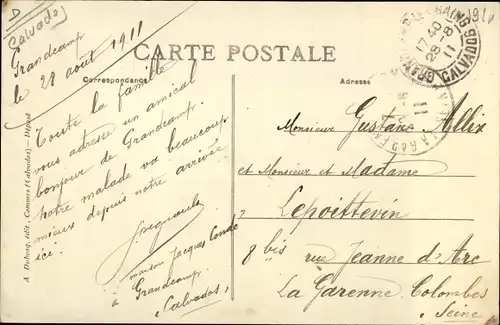 D
Calvados
1911
CARTE POSTALE
Correspondance
Adresse
Grandcamp
le 28 août 1911
Toute la famille
vous adresse un amical
bonjour de Grandcamp.
notre malade va beaucoup
mieux depuis notre arrivée
ici.
maison Jacques Conde
à Grandcamp
(Calvados)
A. Dubosq, édit., Commes (Calvados) — Déposé
17 40
28 - 8
11
CALVADOS
Monsieur Gustave Allix
et Monsieur et Madame
Lepoittevin
8 bis rue Jeanne d'Arc
La Garenne Colombes
Seine